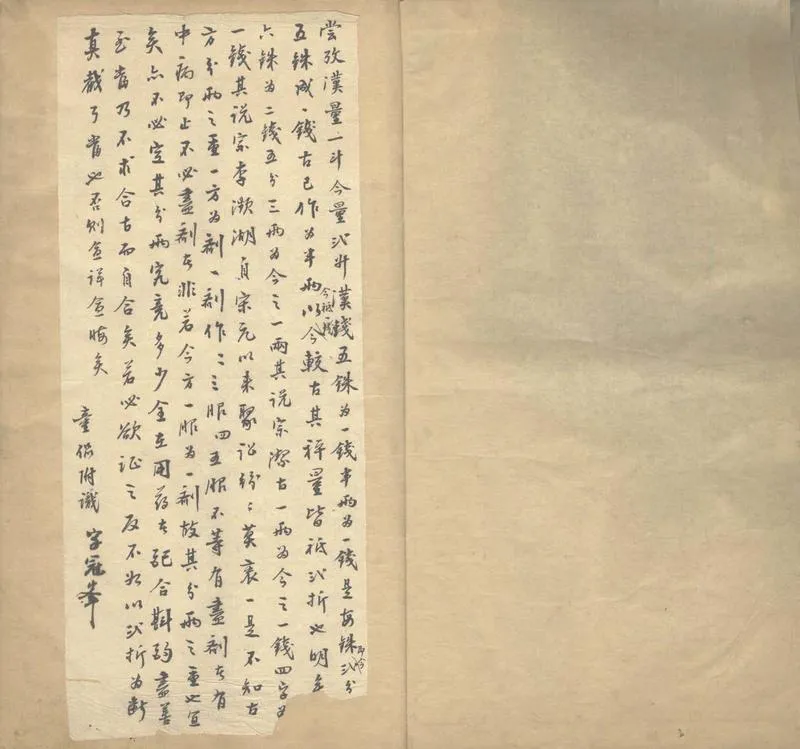 嘗攷漢量一斗今量弍升漢錢五銖為一錢半兩為一錢是每銖弍分
五銖成一錢古已作為半兩以今較古其秤量皆祗弍折也明矣
六銖為二錢五分三兩為今之一兩其説宗潔古一兩為今之一錢四字為
一錢其说宗李瀕湖自宋元以来聚訟紛〻莫衷一是不知古
方分兩之重一方為劑一劑作二三服四五服不等有盡劑者有
中病即止不必盡劑者非若今方一服為一劑故其分兩之重也宜
矣亦不必定其分兩究竟多少全在用药者配合斟酌盡善
至當乃不求合古而自合矣若必欲证之反不如以弍折為断
真截了當也否则愈詳愈晦矣
附識 字冠峯